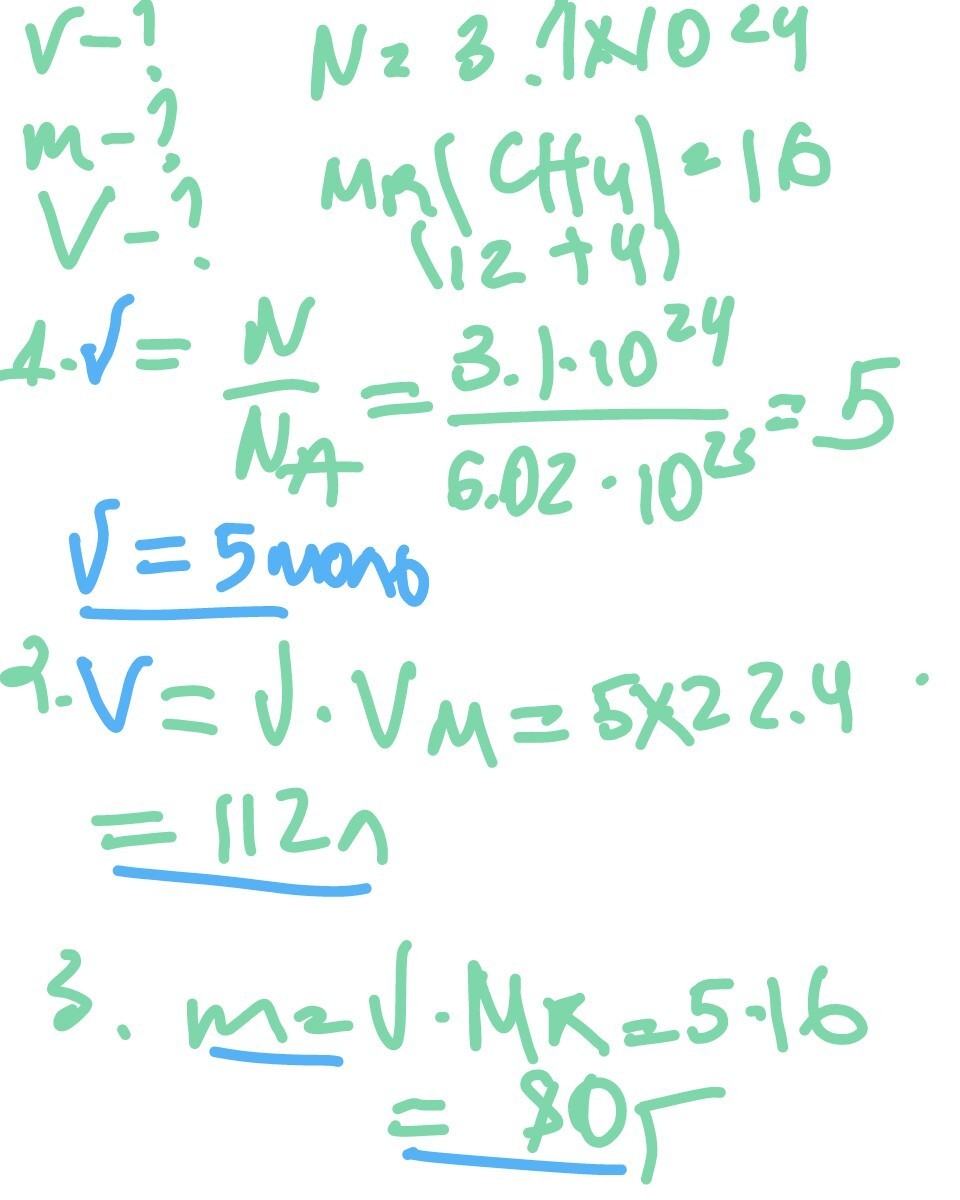 V-? N=3.1x10²⁴
m-? MR(CH4)=16
V-? (12+4)
1. ν = N/NA = 3.1·10²⁴/6.02·10²³ = 5
ν = 5 моль
2. V = ν·VM = 5x22.4
= 112л
3. m = ν·MR = 5·16
= 80г